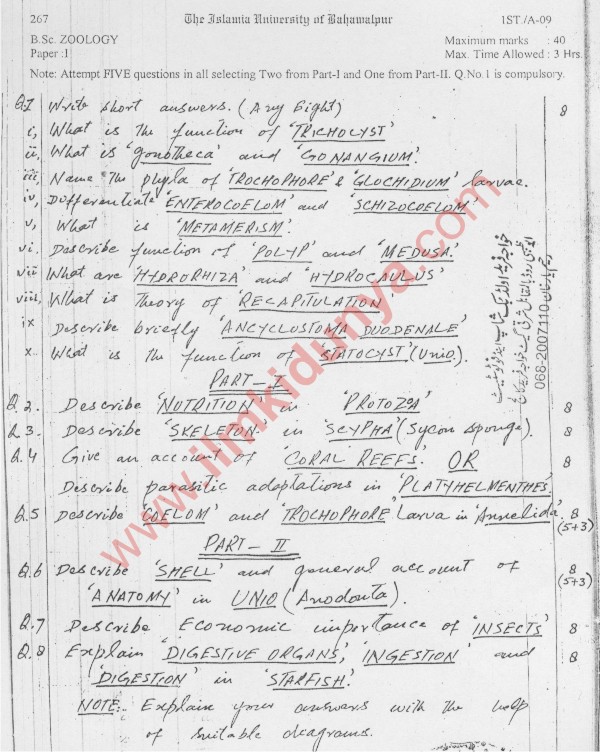 267 The Islamia University of Bahawalpur 1ST./A-09
B.Sc. ZOOLOGY Maximum marks : 40
Paper :I Max. Time Allowed : 3 Hrs.
Note: Attempt FIVE questions in all selecting Two from Part-I and One from Part-II. Q.No.1 is compulsory.
Q.I Write short answers. (Any Eight) 8
i, What is the function of 'TRICHOCYST'
ii, What is 'gonotheca' and 'GONANGIUM'.
iii, Name The phyla of 'TROCHOPHORE' & 'GLOCHIDIUM' larvae.
iv, Differentiate 'ENTEROCOELOM' and 'SCHIZOCOELOM'
v, What is 'METAMERISM'.
vi. Describe function of 'POLYP' and 'MEDUSA.'
vii What are 'HYDRORHIZA' and 'HYDROCAULUS'
viii, What is Theory of 'RECAPITULATION'
ix Describe briefly 'ANCYCLOSTOMA DUODENALE'
x. What is the function of 'STATOCYST' (Unio).
068-2007110
PART-I
Q.2. Describe 'NUTRITION' in 'PROTOZOA' 8
Q.3. Describe 'SKELETON' in 'SCYPHA' (Sycon sponge). 8
Q.4 Give an account of 'CORAL REEFS'. OR 8
Describe parasitic adaptations in 'PLATYHELMENTHES'
Q.5 Describe 'COELOM' and TROCHOPHORE' Larva in 'Annelida'. 8
(5+3)
PART-II
Q.6 Describe 'SHELL' and general account of 8
'ANATOMY' in UNIO (Anodonta). (5+3)
Q.7 Describe Economic importance of 'INSECTS' 8
Q.8 Explain 'DIGESTIVE ORGANS', 'INGESTION' and 8
'DIGESTION' in 'STARFISH'.
NOTE:- Explain your answers with the help
of suitable diagrams.
www.ilmkidunya.com